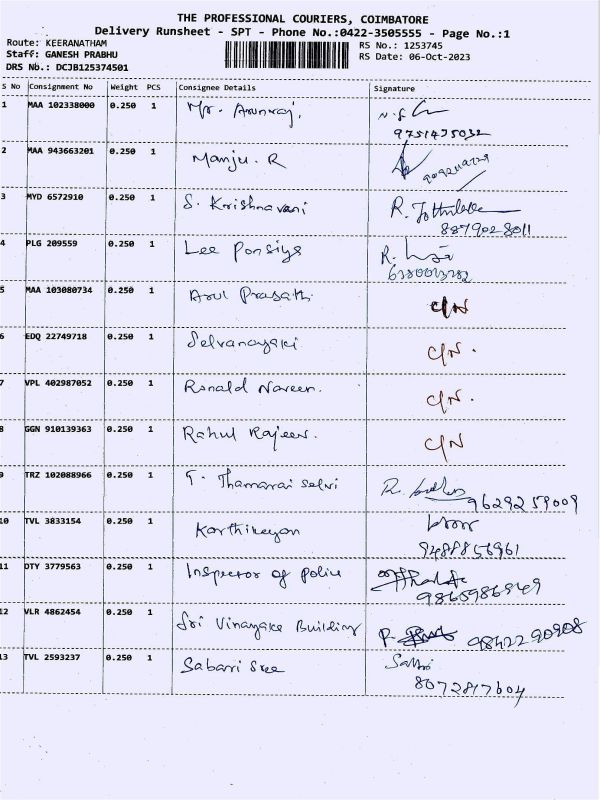 THE PROFESSIONAL COURIERS, COIMBATORE
Delivery Runsheet - SPT - Phone No.:0422-3505555 - Page No.:1
Route: KEERANATHAM
Staff: GANESH PRABHU
DRS No.: DCJB125374501
RS No.: 1253745
RS Date: 06-Oct-2023
S No Consignment No Weight PCS Consignee Details Signature
1 MAA 102338000 0.250 1 Mr. Arunraj.
9751475032
2 MAA 943663201 0.250 1 Manju. R
3 MYD 6572910 0.250 1 S. Krishnavani R.
8879028011
4 PLG 209559 0.250 1 Lee Ponsiya R.
5 MAA 103080734 0.250 1 Arul Prasath. C/N
6 EDQ 22749718 0.250 1 Selvanayaki C/N.
7 VPL 402987052 0.250 1 Ronald Naveen. C/N.
8 GGN 910139363 0.250 1 Rahul Rajeev. C/N
9 TRZ 102088966 0.250 1 T. Thamarai Selvi
9629259009
10 TVL 3833154 0.250 1 Karthikeyan
9488856961
11 DTY 3779563 0.250 1 Inspector of Police
9865986949
12 VLR 4862454 0.250 1 Sri Vinayaka Building P. 9842290908
13 TVL 2593237 0.250 1 Sabarri Sree Sabri
8072817604